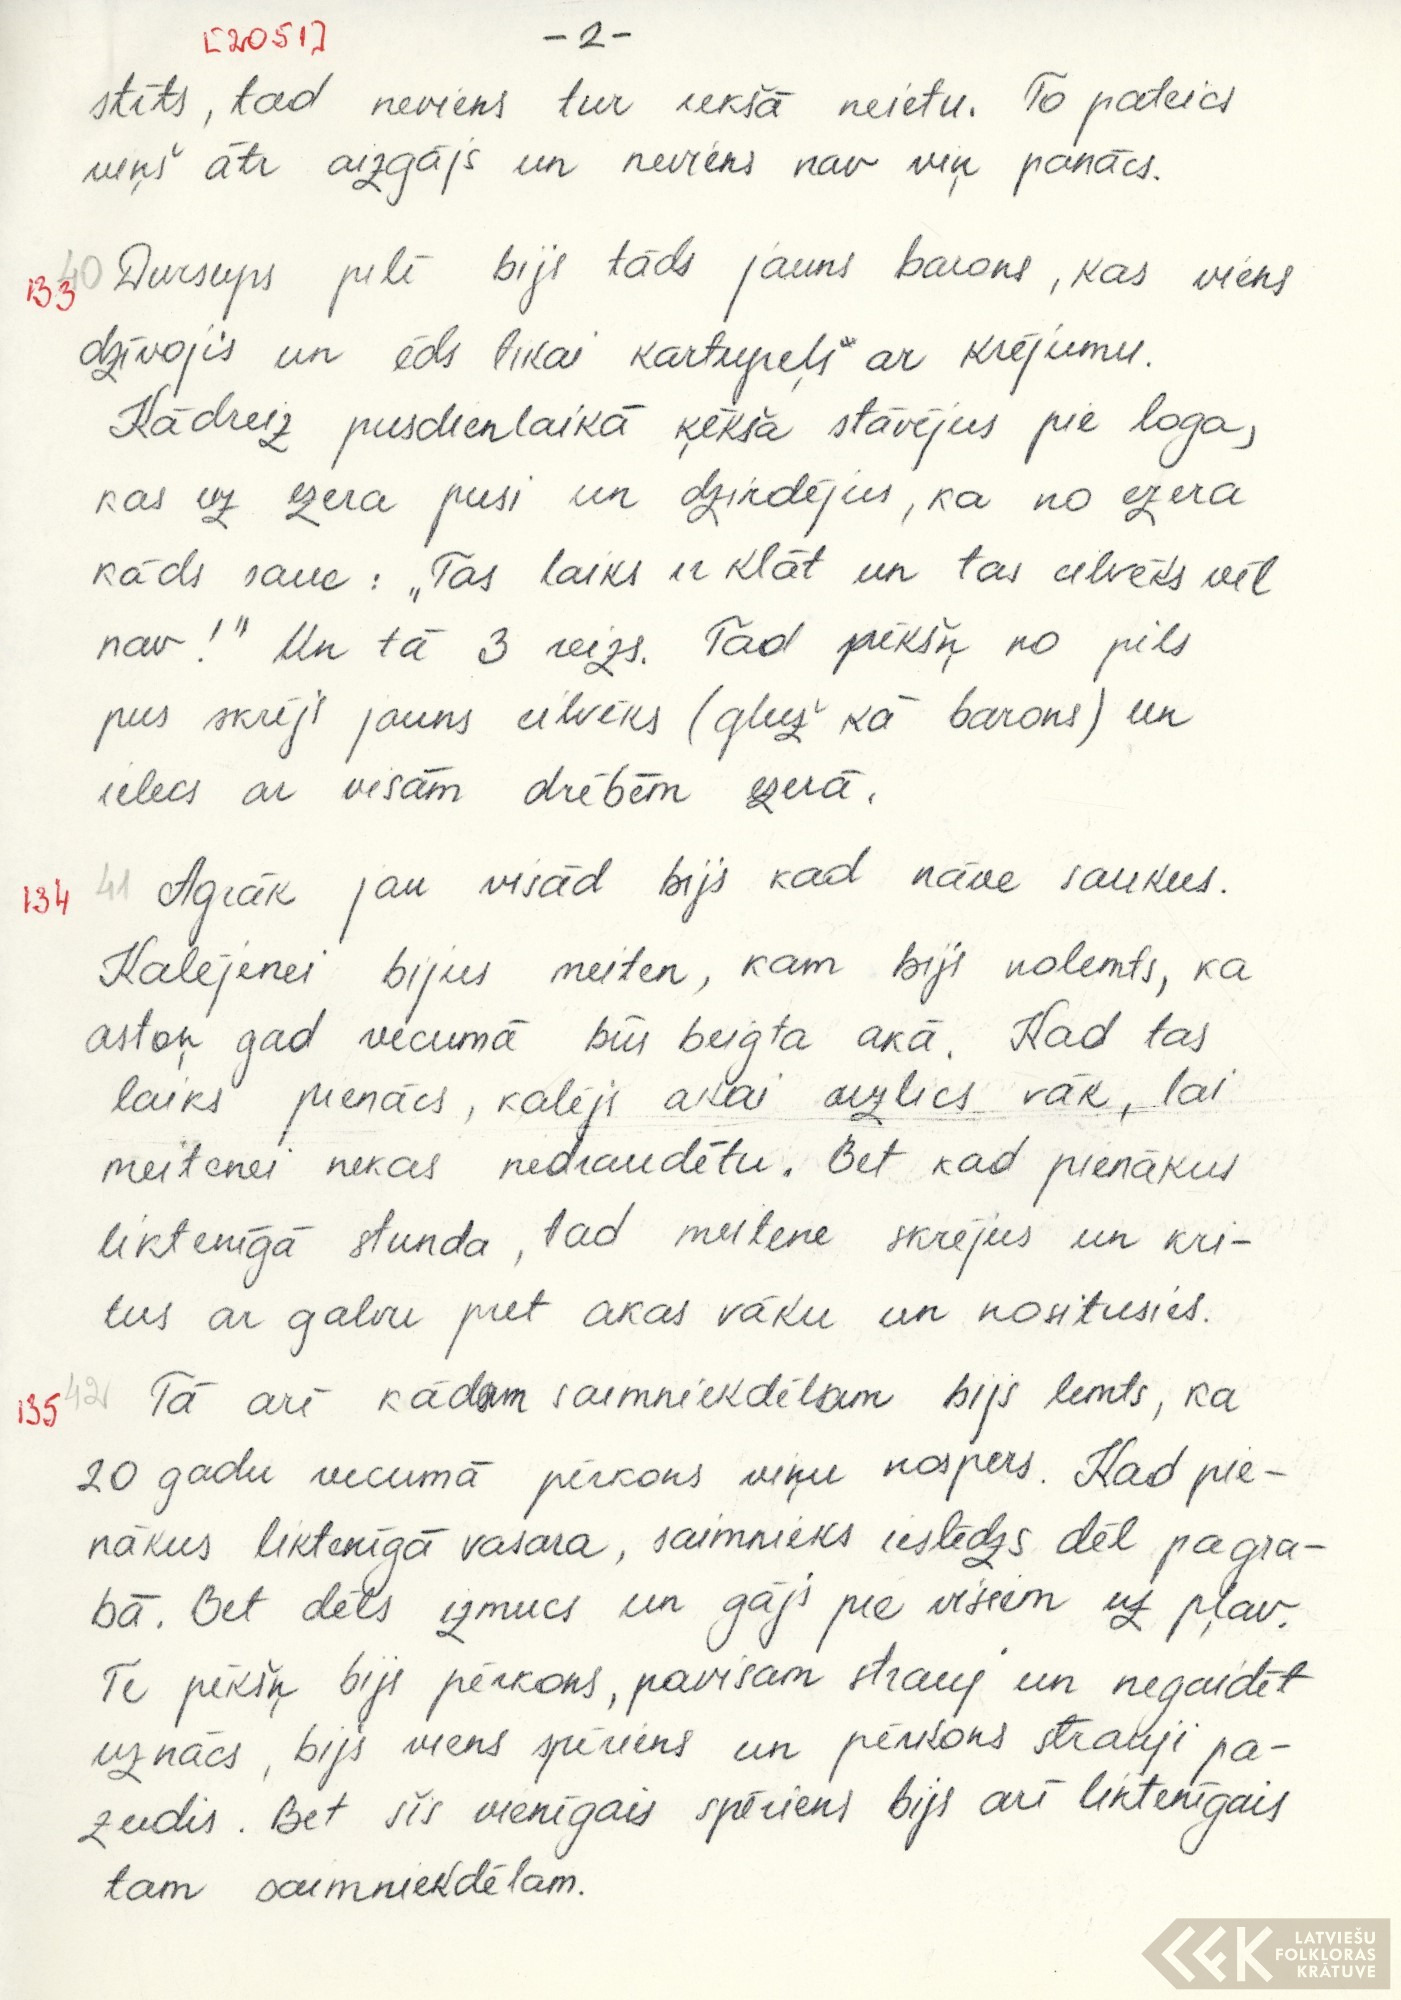 [2051] -2-
stīts, tad neviens tur iekšā neietu. To pateics
viņš ātr aizgājs un neviens nav viņ panācs.
133 40 Dursups pilī bijs tāds jauns barons, kas viens
dzīvojis un ēds tikai kartupeļs ar krējumu.
Kādreiz pusdienlaikā ķēkša stāvējus pie loga,
kas uz ezera pusi un dzirdējus, ka no ezera
kāds sauc: „Tas laiks ir klāt un tas cilvēks vēl
nav!" Un tā 3 reizs. Tad pēkšņ no pils
pus skrējs jauns cilvēks (gluž kā barons) un
ielecs ar visām drēbēm ezerā.
134 41 Agrāk jau visād bijs kad nāve saukus.
Kalējenei bijus meiten, kam bijs nolemts, ka
astoņ gad vecumā būs beigta akā. Kad tas
laiks pienācs, kalējs akai aizlics vāk, lai
meitenei nekas nedraudētu. Bet kad pienākus
liktenīgā stunda, tad meitene skrējus un kri-
tus ar galvu pret akas vāku un nositusies.
135 42 Tā arī kādam saimniekdēlam bijs lemts, ka
20 gadu vecumā pērkons viņu nospers. Kad pie-
nākus liktenīgā vasara, saimnieks ieslēdzs dēl pagra-
bā. Bet dēls izmucs un gājs pie visiem uz pļav.
Te pēkšņ bijs pērkons, pavisam strauj un negaidēt
uznācs, bijs viens spēriens un pērkons strauji pa-
zudis. Bet šis vienīgais spēriens bijs arī liktenīgais
tam saimniekdēlam.
LATVIEŠU
FOLKLORAS
KRĀTUVE